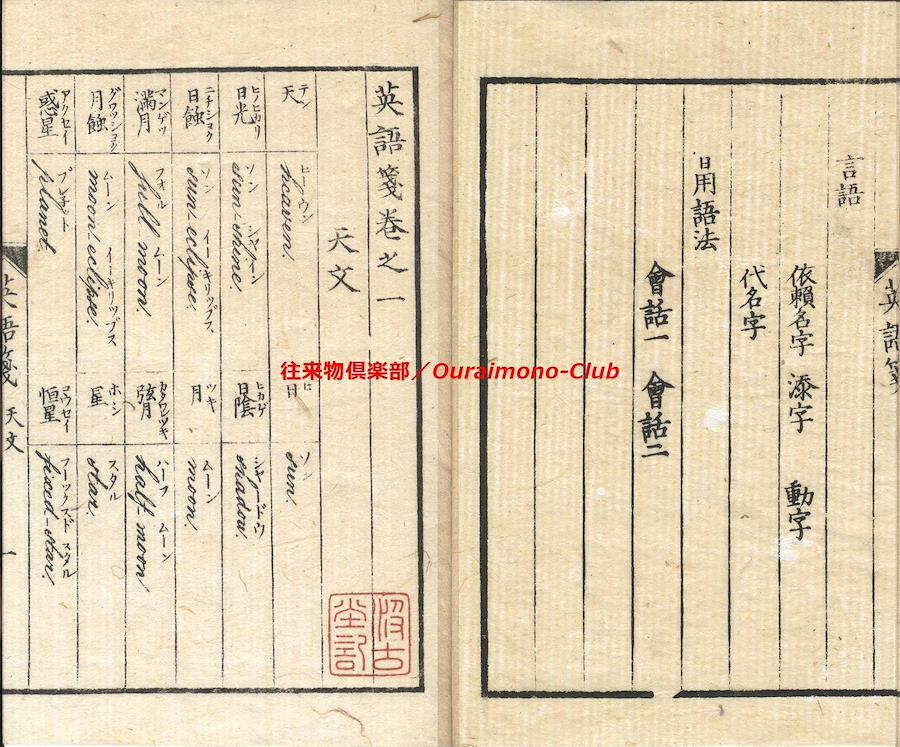 英語箋
言語
依頼名字 添字 動字
代名字
日用語法
會話一 會話二
英語箋巻之一
天文
テン
天
ヒーウン
heaven.
ヒ
日
ソン
sun.
ヒノヒカリ
日光
ソン シャイーン
sun-shine.
ヒカゲ
日陰
シャードウ
shadow.
ニチショク
日蝕
ソン イーキリップス
sun-eclipse.
ツキ
月
ムーン
moon.
マンゲツ
満月
フォル ムーン
full moon.
カタワレツキ
弦月
ハーフ ムーン
half-moon
グワッショク
月蝕
ムーン イーキリップス
moon-eclipse.
ホシ
星
スタル
star.
アクセイ
惑星
planet.
コウセイ
恒星
スタル
fixed-star.
英語箋 天文 一
往来物倶楽部／Ouraimono-Club